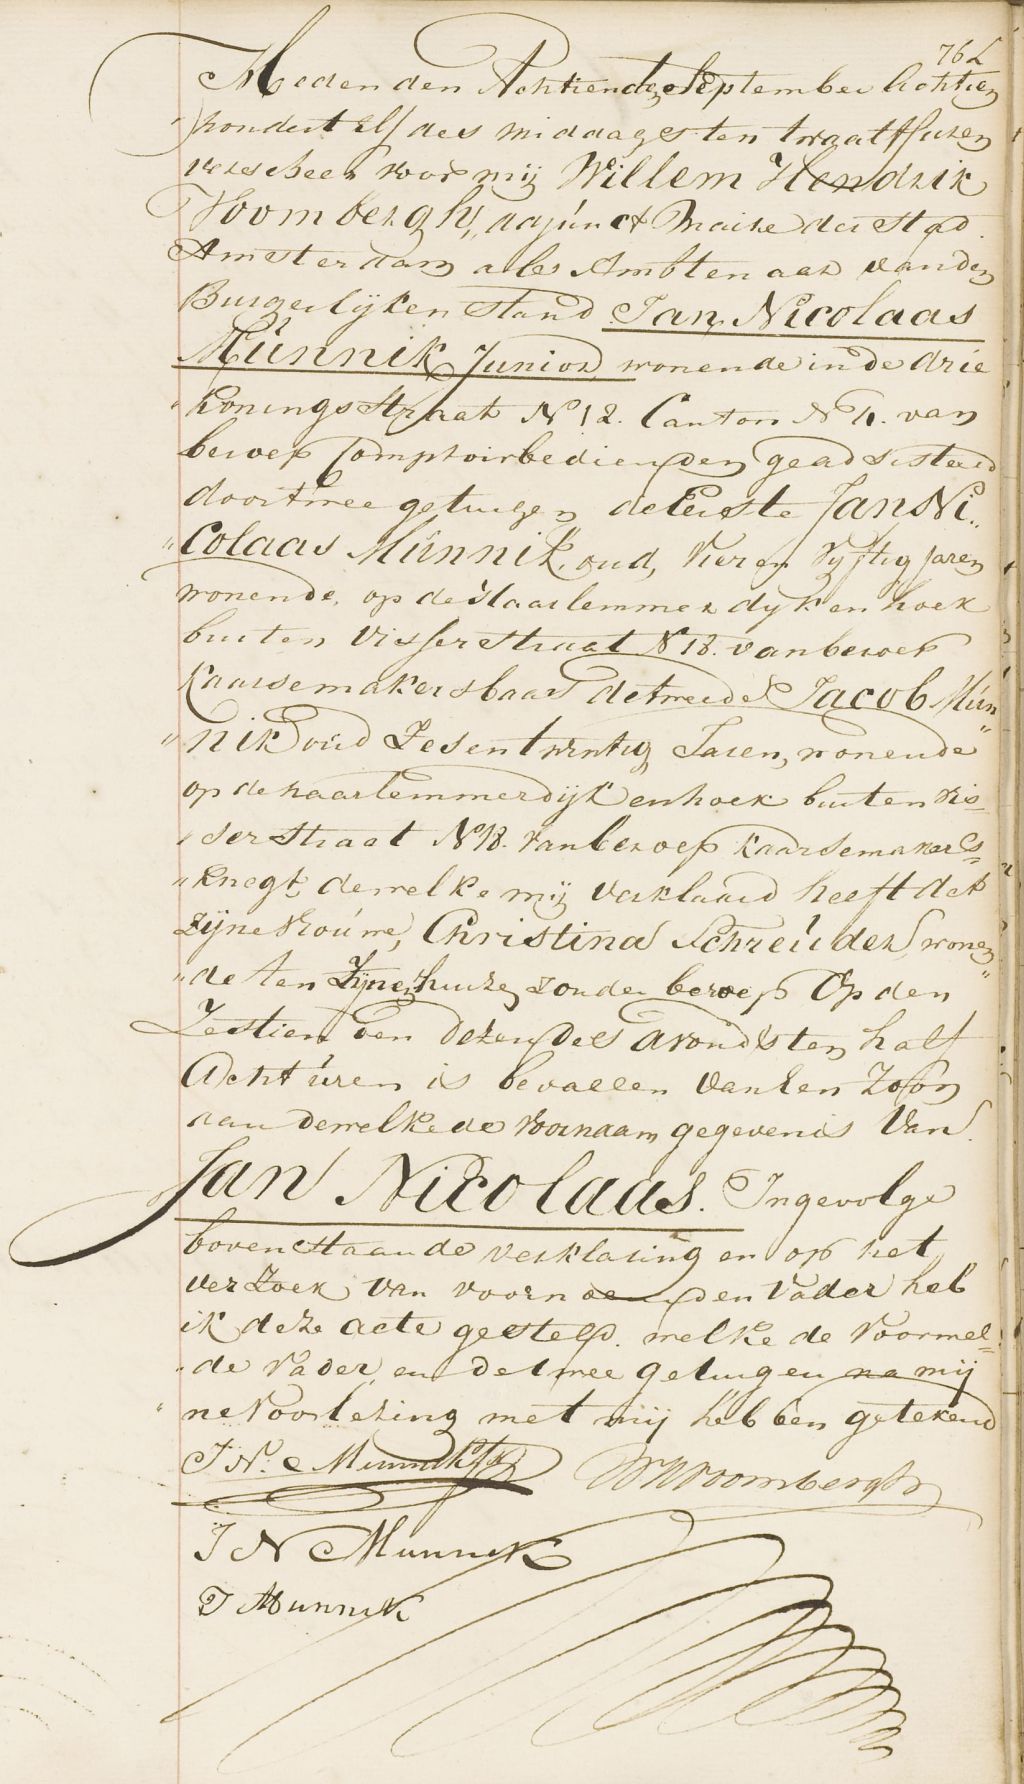 76
Heden den Achtiende September Achtien
hondert Elf des middags ten twaalf Uren
verscheen voor mij Willem Hendrik
Voombergh, adjunct Maire der Stad
Amsterdam als Ambtenaar van den
Burgerlijken Stand Jan Nicolaas
Münnik Junior wonende in de drie
"Konings Straat N 12. Canton N 4. van
beroep Comptoirbediende geadsisteerd
door twee getuigen de Eerste Jan Ni„
"Colaas Münnik, oud, Vier en Vyftig Jaren
wonende, op de Haarlemmer dyk en hoek
buiten Visserstraat N 18. van beroep
Kaarsemakersbaas de tweede Jacob Mün
"nik oud Zesentwintig Jaren, wonende
op de haarlemmerdijk en hoek buiten Vis„
serstraat N 18. van beroep Kaarsemakers„
"Knegt, derwelke mij verklaard heeft dat
zijne Vrouwe, Christina Schreüder, wonen
"de ten Zijnen huize, zonder beroep Op den
Zestien den dezer des avonds ten half
Acht üren is bevallen van Een Zoon
aan derwelke de voornaam gegeven is Van
Jan Nicolaas. Ingevolge
bovenstaande verklaring en op het
verzoek van voornoemden Vader heb
ik deze acte gesteld. welke de voormel„
"de Vader, en de twee getuigen na mij
ne voorlezing met mij hebben getekend
J N. Munnik Jr WHVoombergh
J N Munnik
J Munnik